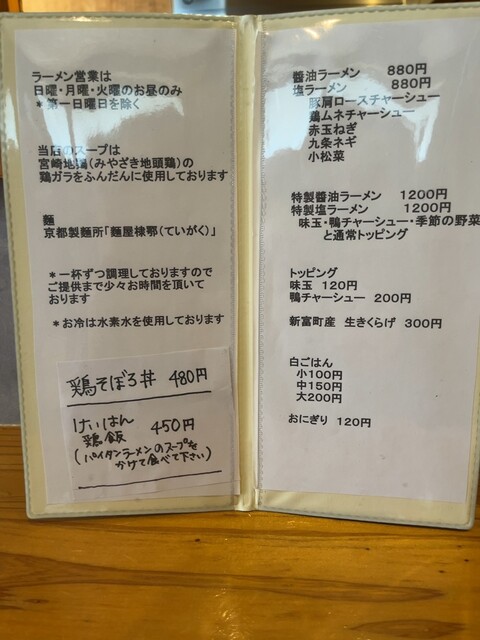 ラーメン営業は
日曜・月曜・火曜のお昼のみ
＊第一日曜日を除く
当店のスープは
宮崎地鶏(みやざき地頭鶏)の
鶏ガラをふんだんに使用しております
麺
京都製麺所「麺屋棣鄂(ていがく)」
＊一杯ずつ調理しておりますので
ご提供まで少々お時間を頂いて
おります
＊お冷は水素水を使用しております
鶏そぼろ丼 480円
けいはん
鶏飯 450円
(パイタンラーメンのスープを
かけて食べて下さい)
醤油ラーメン 880円
塩ラーメン 880円
豚肩ロースチャーシュー
鶏ムネチャーシュー
赤玉ねぎ
九条ネギ
小松菜
特製醤油ラーメン 1200円
特製塩ラーメン 1200円
味玉・鴨チャーシュー・季節の野菜
と通常トッピング
トッピング
味玉 120円
鴨チャーシュー 200円
新富町産 生きくらげ 300円
白ごはん
小100円
中150円
大200円
おにぎり 120円